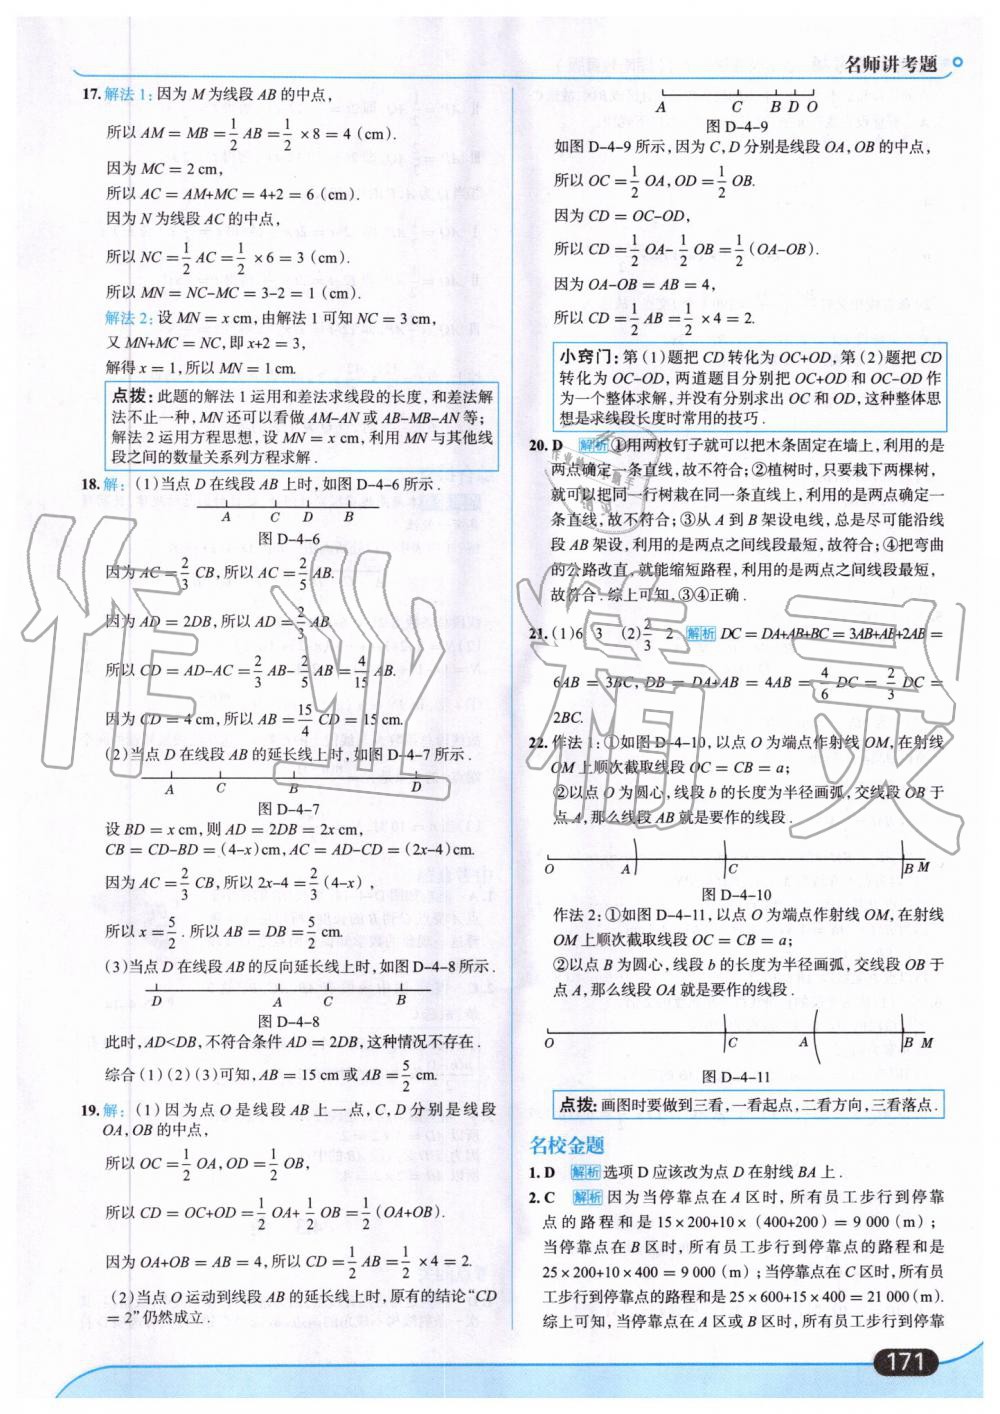 名师讲考题
17.解法1:因为M为线段AB的中点,
所以AM=MB=1/2 AB=1/2×8=4(cm).
因为MC=2 cm,
所以AC=AM+MC=4+2=6(cm).
因为N为线段AC的中点,
所以NC=1/2 AC=1/2×6=3(cm).
所以MN=NC-MC=3-2=1(cm).
解法2:设MN=x cm,由解法1可知NC=3 cm,
又MN+MC=NC,即x+2=3,
解得x=1,所以MN=1 cm.
点拨:此题的解法1运用和差法求线段的长度,和差法解
法不止一种,MN还可以看做AM-AN或AB-MB-AN等;
解法2运用方程思想,设MN=x cm,利用MN与其他线
段之间的数量关系列方程求解.
18.解:(1)当点D在线段AB上时,如图D-4-6所示.
A C D B
图D-4-6
因为AC=2/3 CB,所以AC=2/5 AB.
因为AD=2DB,所以AD=2/3 AB.
所以CD=AD-AC=2/3 AB-2/5 AB=4/15 AB.
因为CD=4 cm,所以AB=15/4 CD=15 cm.
(2)当点D在线段AB的延长线上时,如图D-4-7所示.
A C B D
图D-4-7
设BD=x cm,则AD=2DB=2x cm,
CB=CD-BD=(4-x)cm,AC=AD-CD=(2x-4)cm.
因为AC=2/3 CB,所以2x-4=2/3(4-x),
所以x=5/2.所以AB=DB=5/2 cm.
(3)当点D在线段AB的反向延长线上时,如图D-4-8所示.
D A C B
图D-4-8
此时,AD<DB,不符合条件AD=2DB,这种情况不存在.
综合(1)(2)(3)可知,AB=15 cm或AB=5/2 cm.
19.解:(1)因为点O是线段AB上一点,C,D分别是线段
OA,OB的中点,
所以OC=1/2 OA,OD=1/2 OB,
所以CD=OC+OD=1/2 OA+1/2 OB=1/2(OA+OB).
因为OA+OB=AB=4,所以CD=1/2 AB=1/2×4=2.
(2)当点O运动到线段AB的延长线上时,原有的结论“CD
=2”仍然成立.
A C B D O
图D-4-9
如图D-4-9所示,因为C,D分别是线段OA,OB的中点,
所以OC=1/2 OA,OD=1/2 OB.
因为CD=OC-OD,
所以CD=1/2 OA-1/2 OB=1/2(OA-OB).
因为OA-OB=AB=4,
所以CD=1/2 AB=1/2×4=2.
小窍门:第(1)题把CD转化为OC+OD,第(2)题把CD
转化为OC-OD,两道题目分别把OC+OD和OC-OD作
为一个整体求解,并没有分别求出OC和OD,这种整体思
想是求线段长度时常用的技巧.
20.D 解析①用两枚钉子就可以把木条固定在墙上,利用的是
两点确定一条直线,故不符合;②植树时,只要栽下两棵树,
就可以把同一行树栽在同一条直线上,利用的是两点确定一
条直线,故不符合;③从A到B架设电线,总是尽可能沿线
段AB架设,利用的是两点之间线段最短,故符合;④把弯曲
的公路改直,就能缩短路程,利用的是两点之间线段最短,
故符合.综上可知,③④正确.
21.(1)6 3 (2)2/3 2 解析DC=DA+AB+BC=3AB+AB+2AB=
6AB=3BC,DB=DA+AB=4AB=4/6 DC=2/3 DC=
2BC.
22.作法1:①如图D-4-10,以点O为端点作射线OM,在射线
OM上顺次截取线段OC=CB=a;
②以点O为圆心,线段b的长度为半径画弧,交线段OB于
点A,那么线段AB就是要作的线段.
O A C B M
图D-4-10
作法2:①如图D-4-11,以点O为端点作射线OM,在射线
OM上顺次截取线段OC=CB=a;
②以点B为圆心,线段b的长度为半径画弧,交线段OB于
点A,那么线段OA就是要作的线段.
O C A B M
图D-4-11
点拨:画图时要做到三看,一看起点,二看方向,三看落点.
名校金题
1.D 解析选项D应该改为点D在射线BA上.
2.C 解析因为当停靠点在A区时,所有员工步行到停靠
点的路程和是15×200+10×(400+200)=9 000(m);
当停靠点在B区时,所有员工步行到停靠点的路程和是
25×200+10×400=9 000(m);当停靠点在C区时,所有员
工步行到停靠点的路程和是25×600+15×400=21 000(m).
综上可知,当停靠点在A区或B区时,所有员工步行到停靠
171
作业精灵